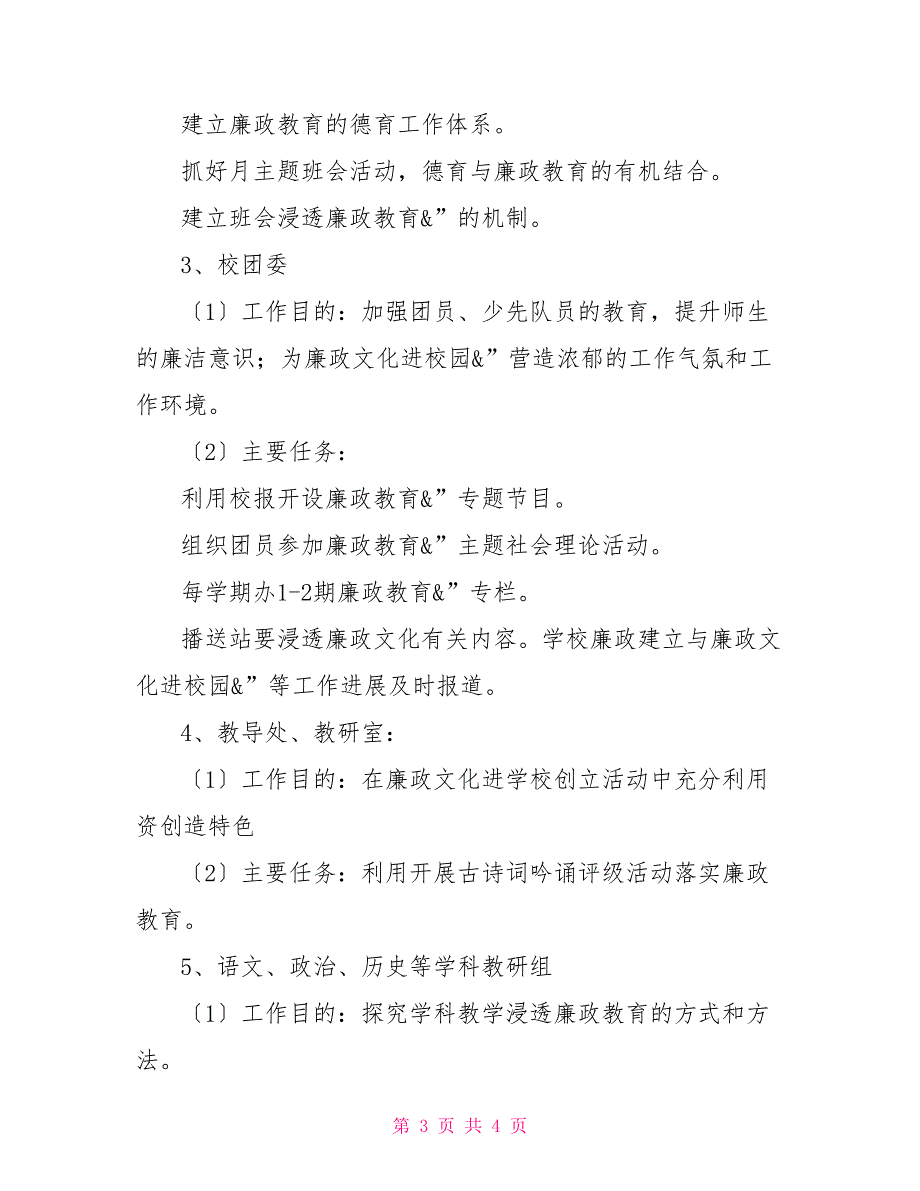 建立廉政教育的德育工作体系。
抓好月主题班会活动，德育与廉政教育的有机结合。
建立班会浸透廉政教育&”的机制。
3、校团委
〔1〕工作目的：加强团员、少先队员的教育，提升师生
的廉洁意识；为廉政文化进校园&”营造浓郁的工作气氛和工
作环境。
〔2〕主要任务：
利用校报开设廉政教育&”专题节目。
组织团员参加廉政教育&”主题社会理论活动。
每学期办1-2期廉政教育&”专栏。
播送站要浸透廉政文化有关内容。学校廉政建立与廉政文
化进校园&”等工作进展及时报道。
4、教导处、教研室：
〔1〕工作目的：在廉政文化进学校创立活动中充分利用
资创造特色
〔2〕主要任务：利用开展古诗词吟诵评级活动落实廉政
教育。
5、语文、政治、历史等学科教研组
〔1〕工作目的：探究学科教学浸透廉政教育的方式和方
法。
第 3 页 共 4 页